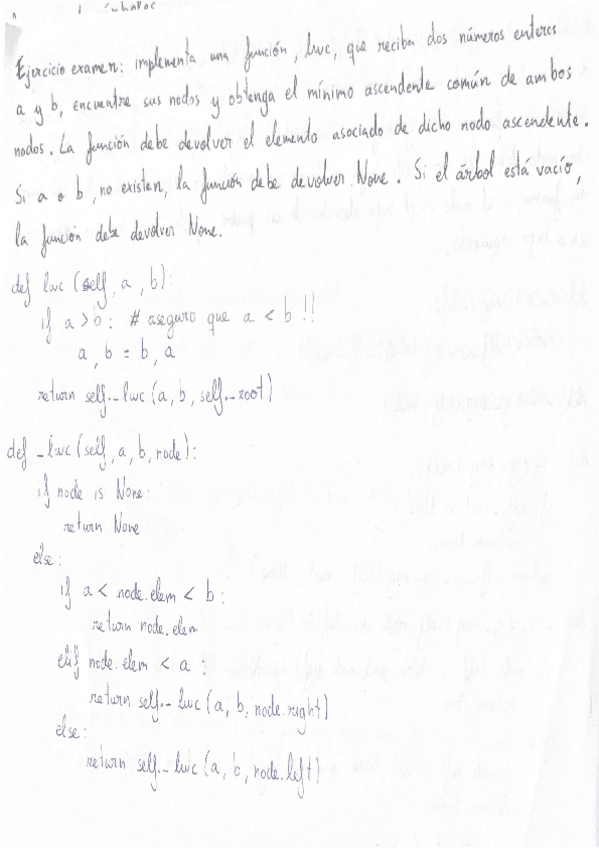 Ejercicio examen: implementa una función, lwc, que reciba dos números enteros
a y b, encuentre sus nodos y obtenga el mínimo ascendente común de ambos
nodos. La función debe devolver el elemento asociado de dicho nodo ascendente.
Si a o b, no existen, la función debe devolver None. Si el árbol está vacío,
la función debe devolver None.
def lwc (self, a, b):
if a > b: # aseguro que a < b !!
a, b = b, a
return self._lwc (a, b, self._root)
def _lwc (self, a, b, node):
if node is None:
return None
else:
if a < node.elem < b:
return node.elem
elif node.elem < a :
return self._lwc (a, b, node.right)
else:
return self._lwc (a, b, node.left)